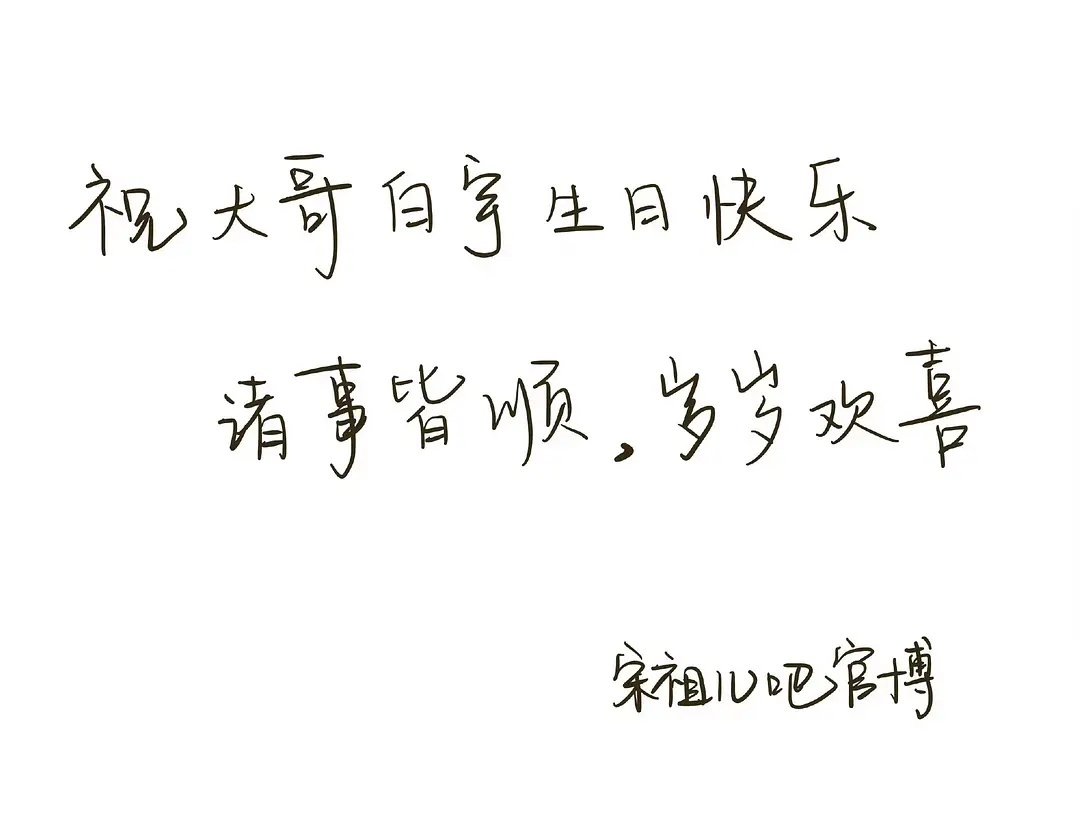 祝大哥白宇生日快乐
诸事皆顺,岁岁欢喜
宋祖儿吧官博